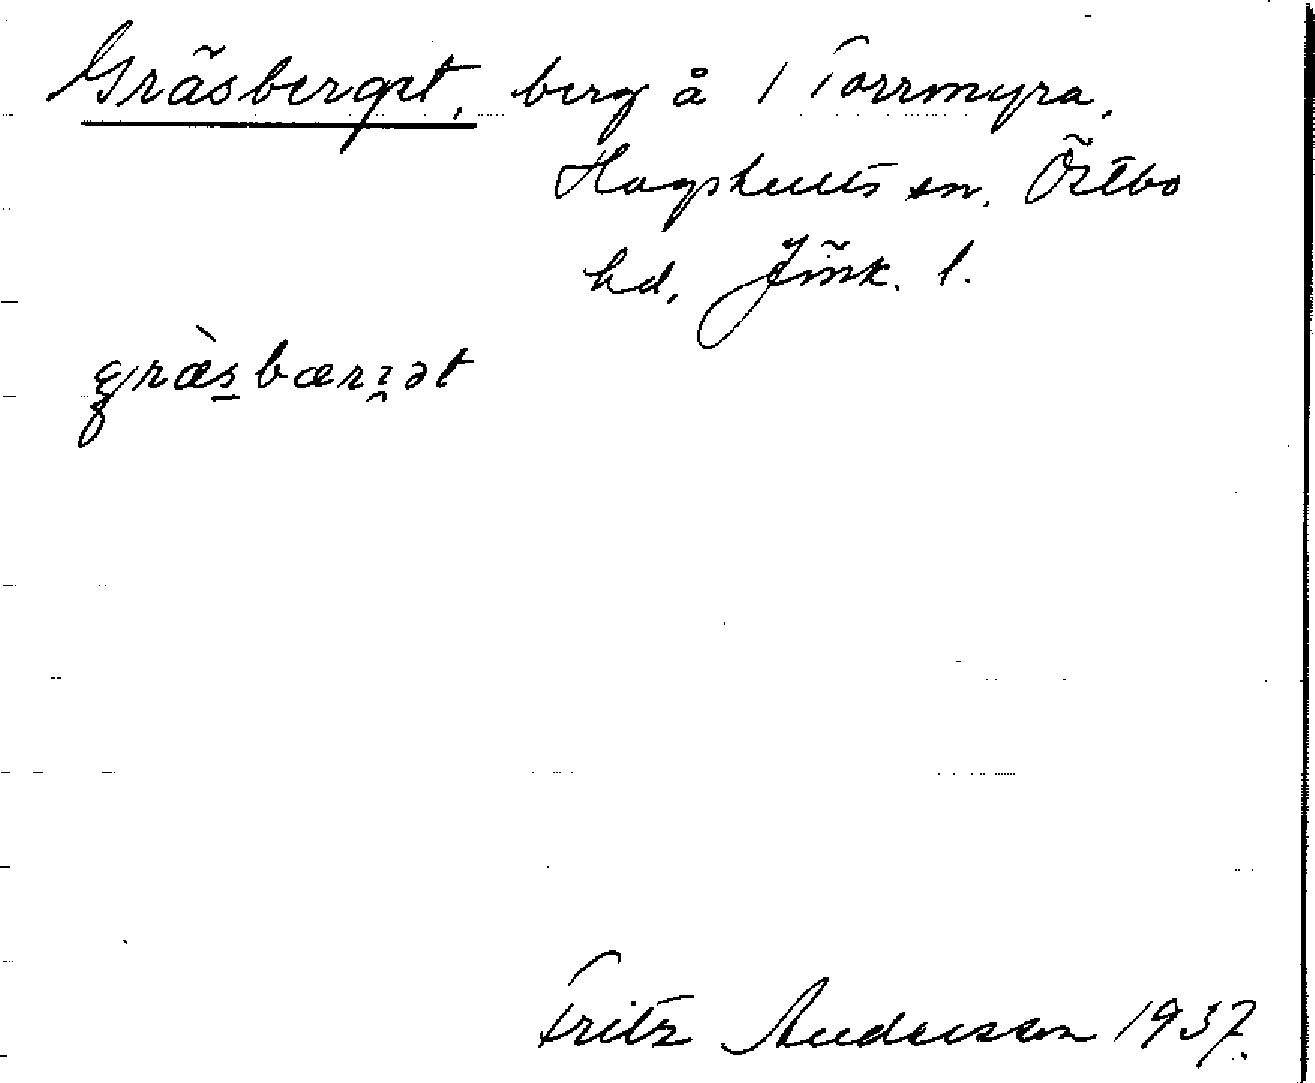 Gräsberget, berg å 1 Torrmyra,
Hagshults sn, Östbo
hd, Jönk. l.
græ̀s̱bærʒət
Fritz Andersson 1937.